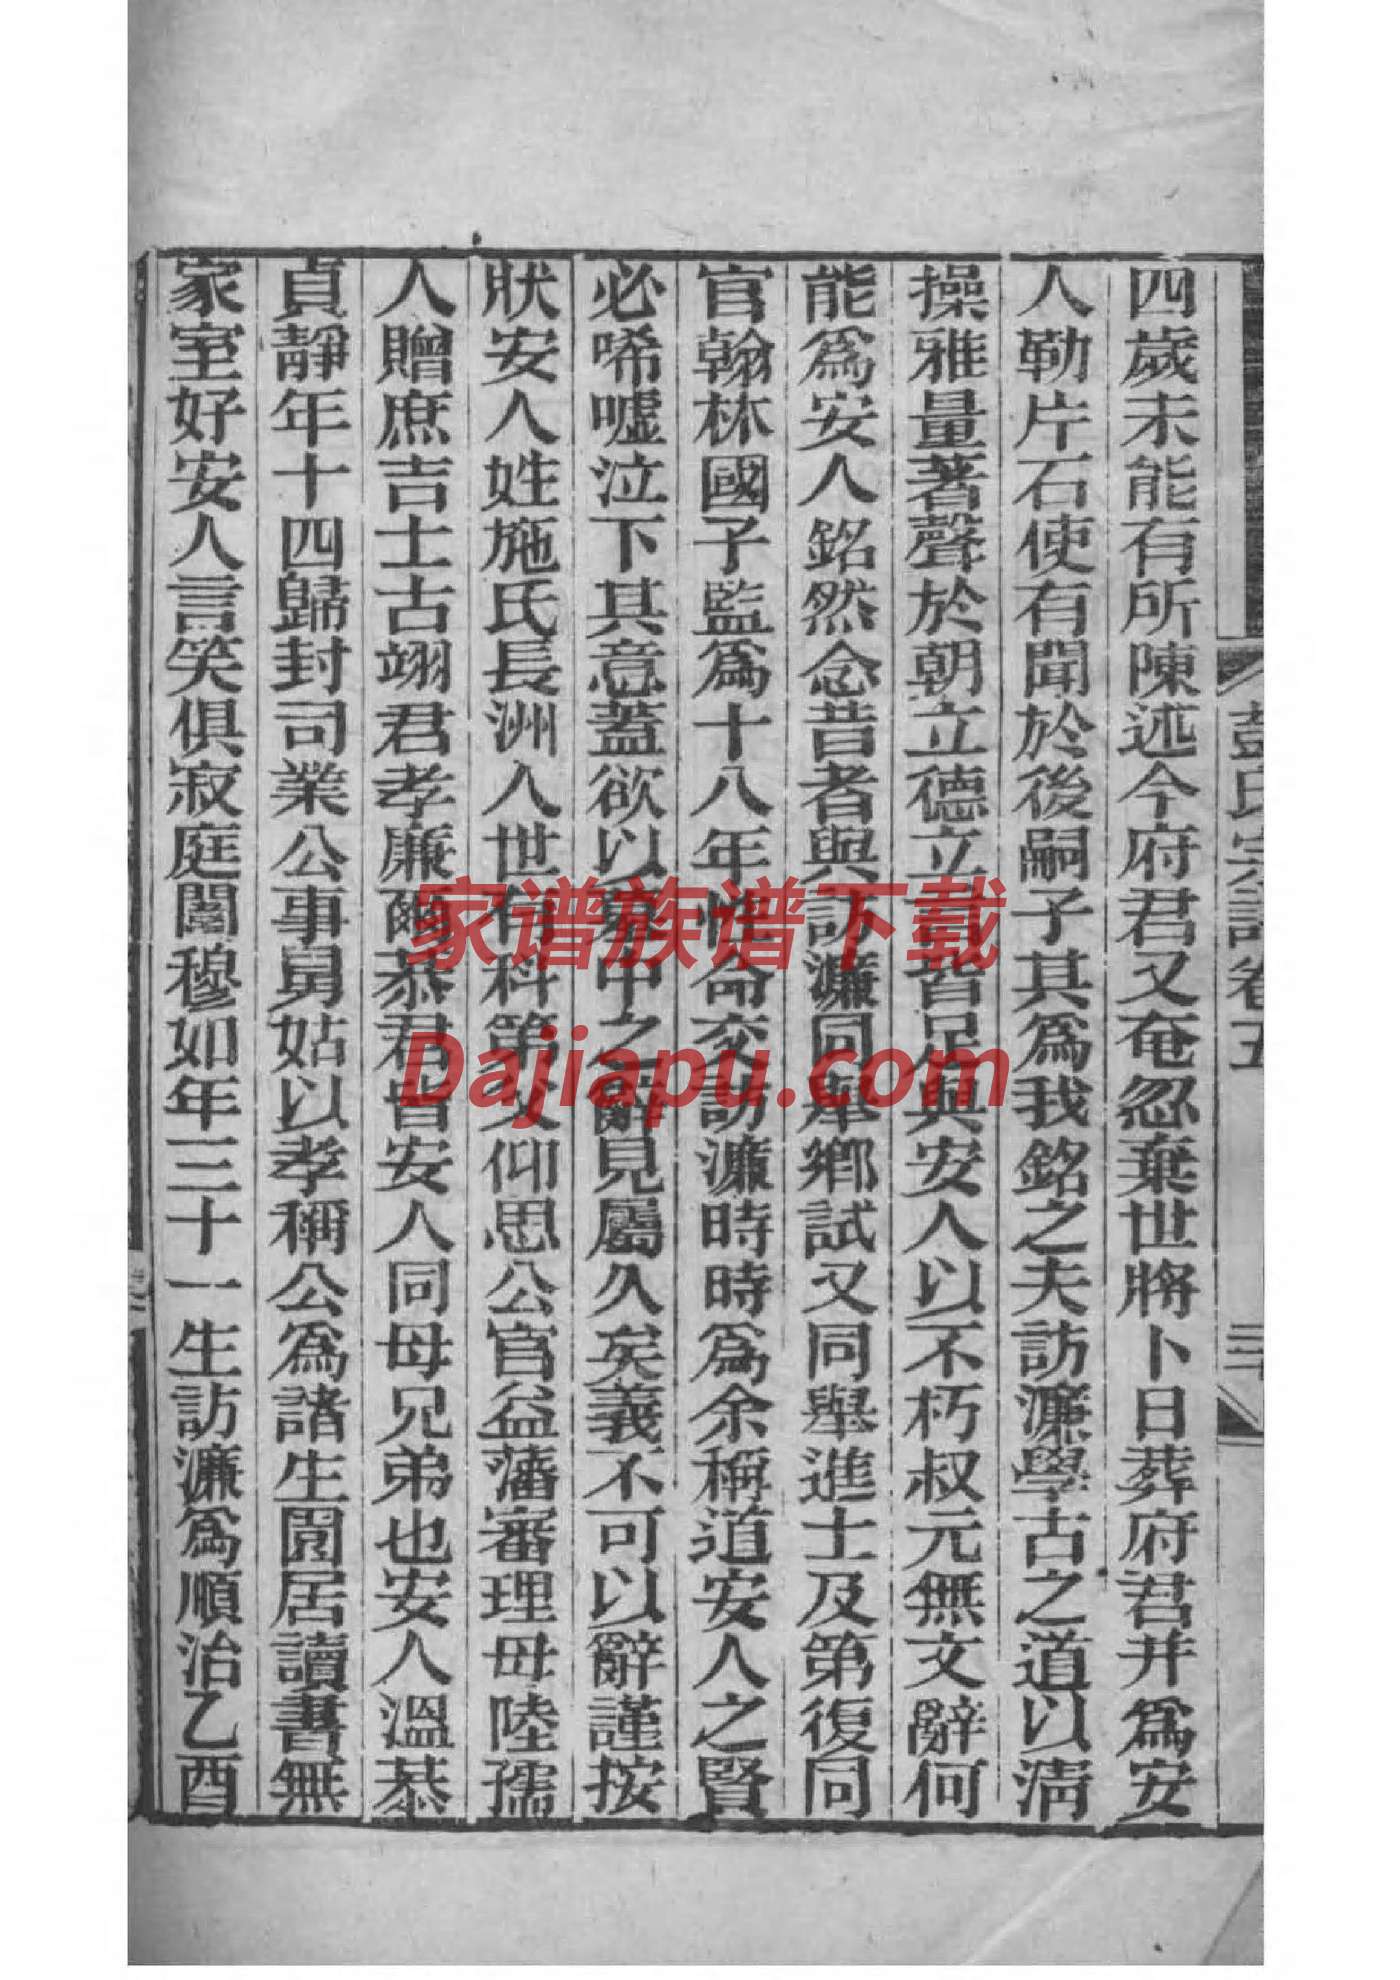 四歲未能有所陳述今府君又奄忽棄世將卜日葬府君井爲安
人勒片石使有聞於後嗣子其爲我銘之夫訪濂學古之道以淸
操雅量著聲於朝立德立言皆足與安人以不朽叔元無文辭何
能爲安人銘然念昔者與訪濂同舉鄉試又同舉進士及第復同
官翰林國子監爲十八年性命交訪濂時時爲余稱道安人之賢
必唏噓泣下其意蓋欲以壙中之辭見屬久矣義不可以辭謹按
狀安人姓施氏長洲人世有科第父仰思公官益藩審理母陸孺
人贈庶吉士古翊君孝廉爾恭君皆安人同母兄弟也安人溫恭
貞靜年十四歸封司業公事舅姑以孝稱公爲諸生閉居讀書無
家室好安人言笑俱寂庭闈穆如年三十一生訪濂爲順治乙酉
彭氏宗譜卷五
三十
家谱族谱下载
Dajiapu.com